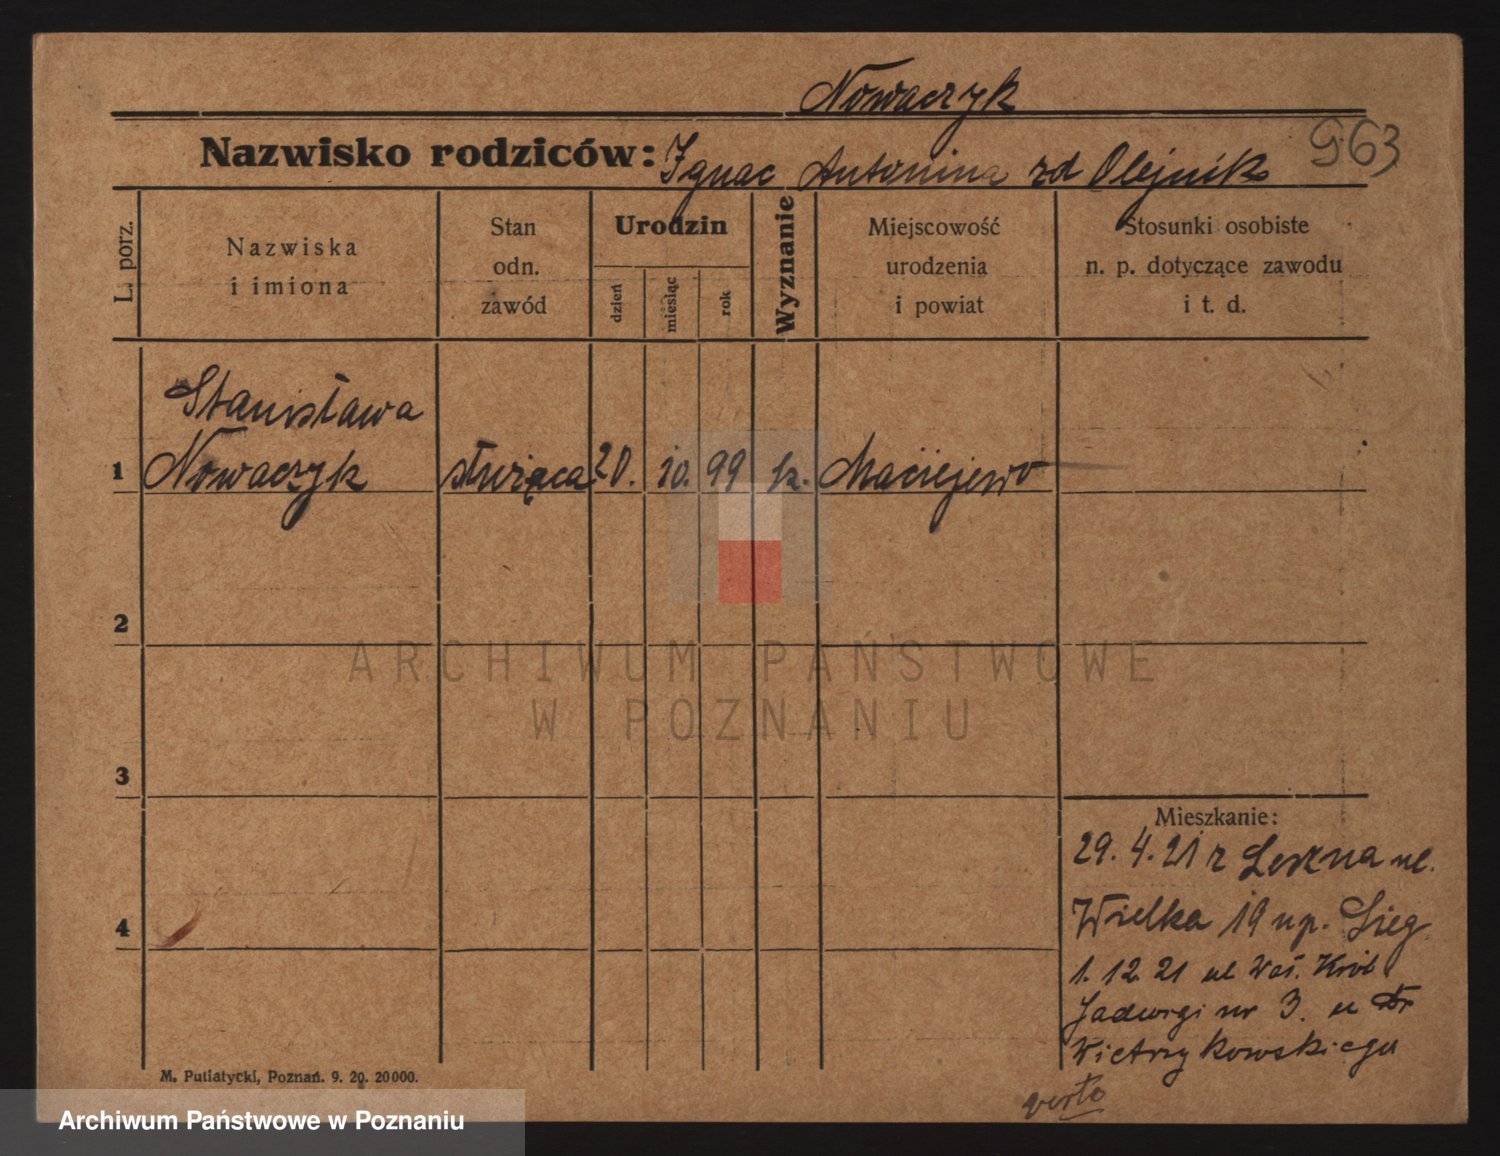 Nowaczyk
Nazwisko rodziców: Ignac Antonina zd Olejnik 963
L. porz.
Nazwiska
i imiona
Stan
odn.
zawód
Urodzin
dzień
miesiąc
rok
Wyznanie
Miejscowość
urodzenia
i powiat
Stosunki osobiste
n. p. dotyczące zawodu
i t. d.
Stanisława
1 Nowaczyk służąca 20. 10. 99 k. Maciejewo
2
ARCHIWUM PAŃSTWOWE
W POZNANIU
3
Mieszkanie:
29. 4. 21 z Leszna ul.
4
Wielka 19 u p.
1. 12. 21 ul Król
Jadwigi nr 3. u Dr
Wietrzykowskiego
verto
M. Putiatycki, Poznań. 9. 20. 20000.
Archiwum Państwowe w Poznaniu